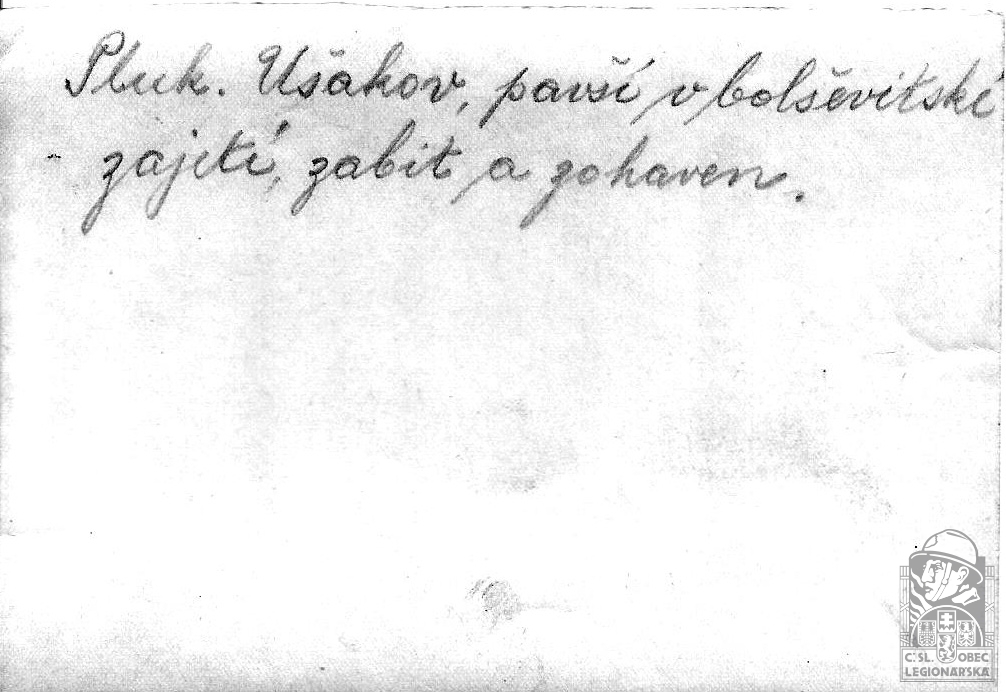 Pluk. Ušakov, pavší v bolševitské
zajetí, zabit a zohaven.
Č.SL. OBEC
LEGIONÁŘSKÁ